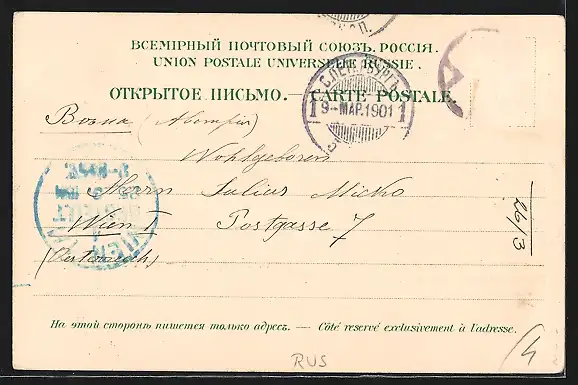 ВСЕМІРНЫЙ ПОЧТОВЫЙ СОЮЗЪ. РОССІЯ.
UNION POSTALE UNIVERSELLE RUSSIE.
С.ПЕТЕРБУРГЪ
1 9-МАР.1901 1
ОТКРЫТОЕ ПИСЬМО. — CARTE POSTALE.
Wohlgeboren
Herrn Julius Micko
Wien I Postgasse 7
(Oesterreich)
26/3
WIEN
На этой сторонѣ пишется только адресъ. — Côté reservé exclusivement à l'adresse.
RUS
4